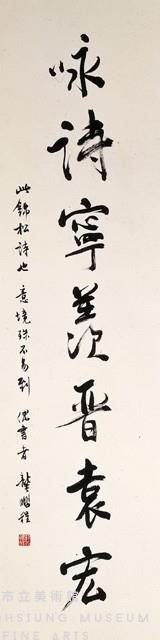 咏詩寧羨晉袁宏
此錦松詩也 意境殊不易到 偶書者 龔鵬程
市立美術館
OHSIUNG MUSEUM
FINE ARTS